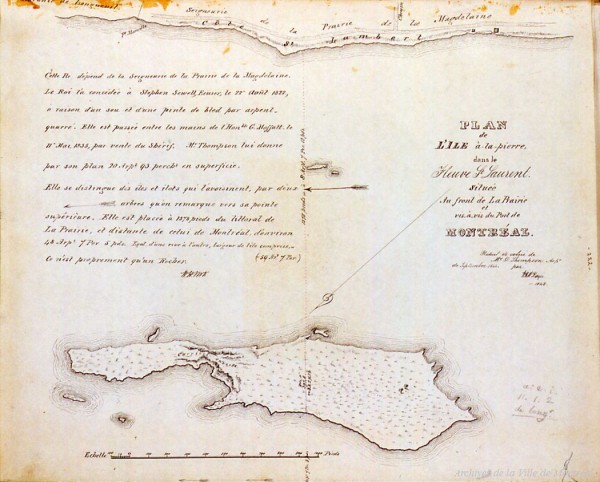 Seigneurie de la Prairie de la Magdelaine
Côte St Lambert
Cette Ile dépend de la Seigneurie de la Prairie de la Magdelaine.
Le Roi l'a concédée à Stephen Sewell, Ecuier, le 28e Août 1822,
à raison d'un sou et d'une pinte de bled par arpent
quarré. Elle est passée entre les mains de l'Honble G. Moffatt, le
Mai, 1833, par vente du Shérif. Mr Thompson lui donne
par son plan 20 Arpts 43 perchs en superficie.
Elle se distingue des iles et ilots qui l'avoisinent, par deux
arbres qu'on remarque vers sa pointe
supérieure. Elle est placée à 1376 pieds du littoral de
La Prairie, et distante de celui de Montréal, d'environ
48 Arpts 7 Per 5 pds. d'une rive à l'autre, largeur de l'ile comprise
Ce n'est proprement qu'un Rocher. (59 Ar 7 Per)
PLAN
de
L'ILE à-la-pierre,
dans le
Fleuve St Laurent.
Située
Au front de La Prairie
et
vis à vis du Port de
MONTRÉAL.
Mr D. Thompson
de Septembre
par
Echelle
Pieds
Archives de la Ville de Montréal